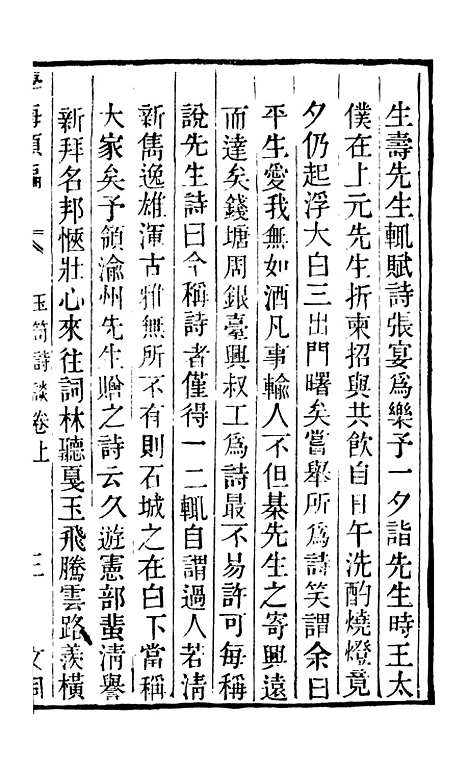 生壽先生輒賦詩張宴爲樂予一夕詣先生時王太
僕在上元先生折柬招與共飲自日午洗酌燒燈竟
夕仍起浮大白三出門曙矣嘗舉所爲詩笑謂余曰
平生愛我無如酒凡事輸人不但棊先生之寄興遠
而達矣錢塘周銀臺興叔工爲詩最不易許可每稱
說先生詩曰今稱詩者僅得一二輒自謂過人若淸
新雋逸雄渾古雅無所不有則石城之在白下當稱
大家矣予領渝州先生贈之詩云久遊憲部蜚淸譽
新拜名邦愜壯心來往詞林聽戛玉飛騰雲路羨橫
海類編
玉笥詩談卷上
三
文詞